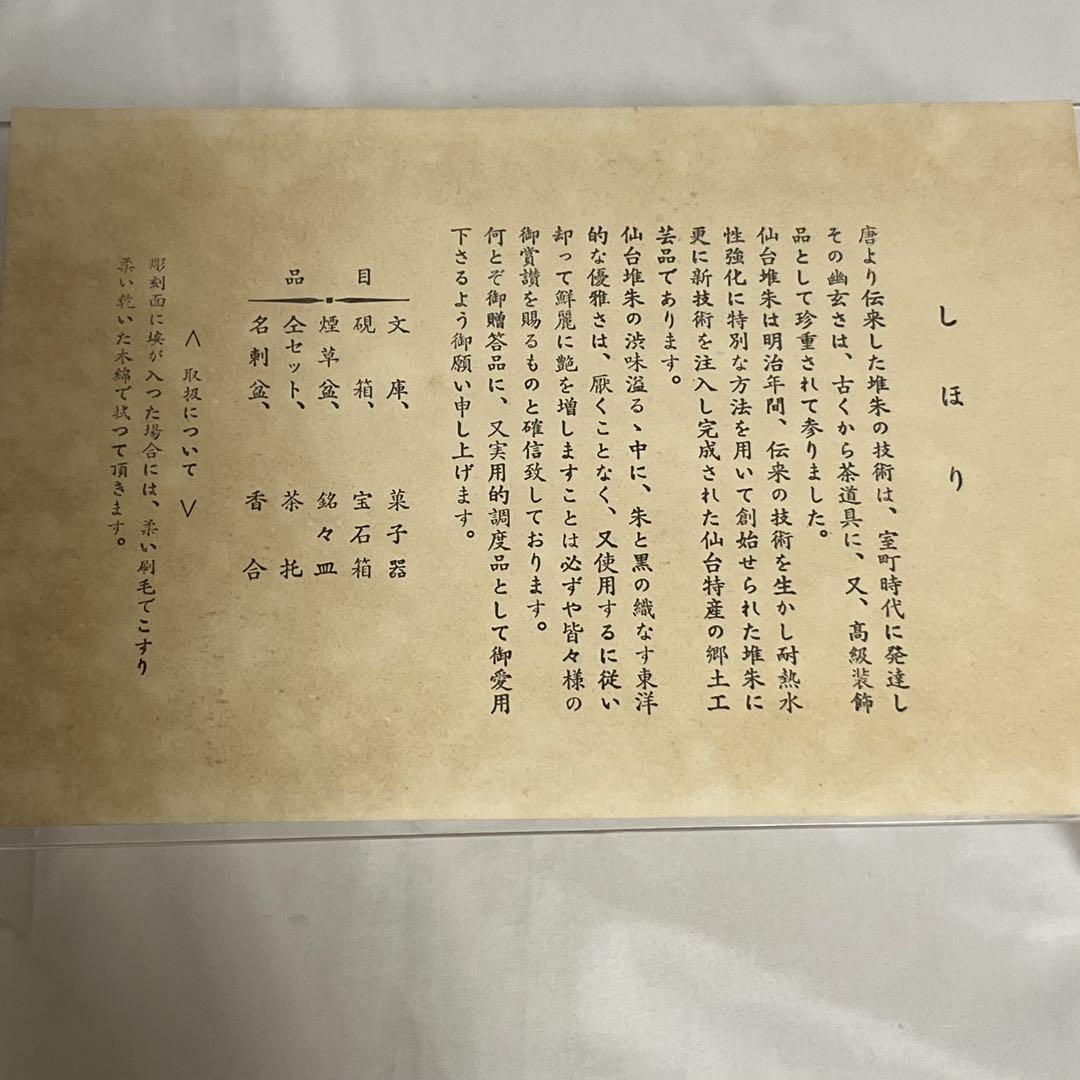 しほり
唐より伝来した堆朱の技術は、室町時代に発達し
その幽玄さは、古くから茶道具に、又、高級装飾
品として珍重されて参りました。
仙台堆朱は明治年間、伝来の技術を生かし耐熱水
性強化に特別な方法を用いて創始せられた堆朱に
更に新技術を注入し完成された仙台特産の郷土工
芸品であります。
仙台堆朱の渋味溢るゝ中に、朱と黒の織なす東洋
的な優雅さは、厭くことなく、又使用するに従い
却って鮮麗に艶を増しますことは必ずや皆々様の
御賞讃を賜るものと確信致しております。
何とぞ御贈答品に、又実用的調度品として御愛用
下さるよう御願い申し上げます。
品目
文庫、 菓子器
硯箱、 宝石箱
煙草盆、 銘々皿
仝セット、 茶托
名刺盆、 香合
＜取扱について＞
彫刻面に埃が入つた場合には、柔い刷毛でこすり
柔い乾いた木綿で拭つて頂きます。